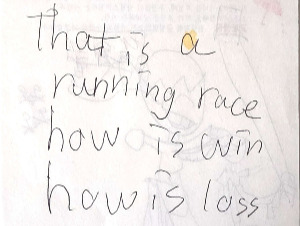 That is a
running race
how is win
how is loss